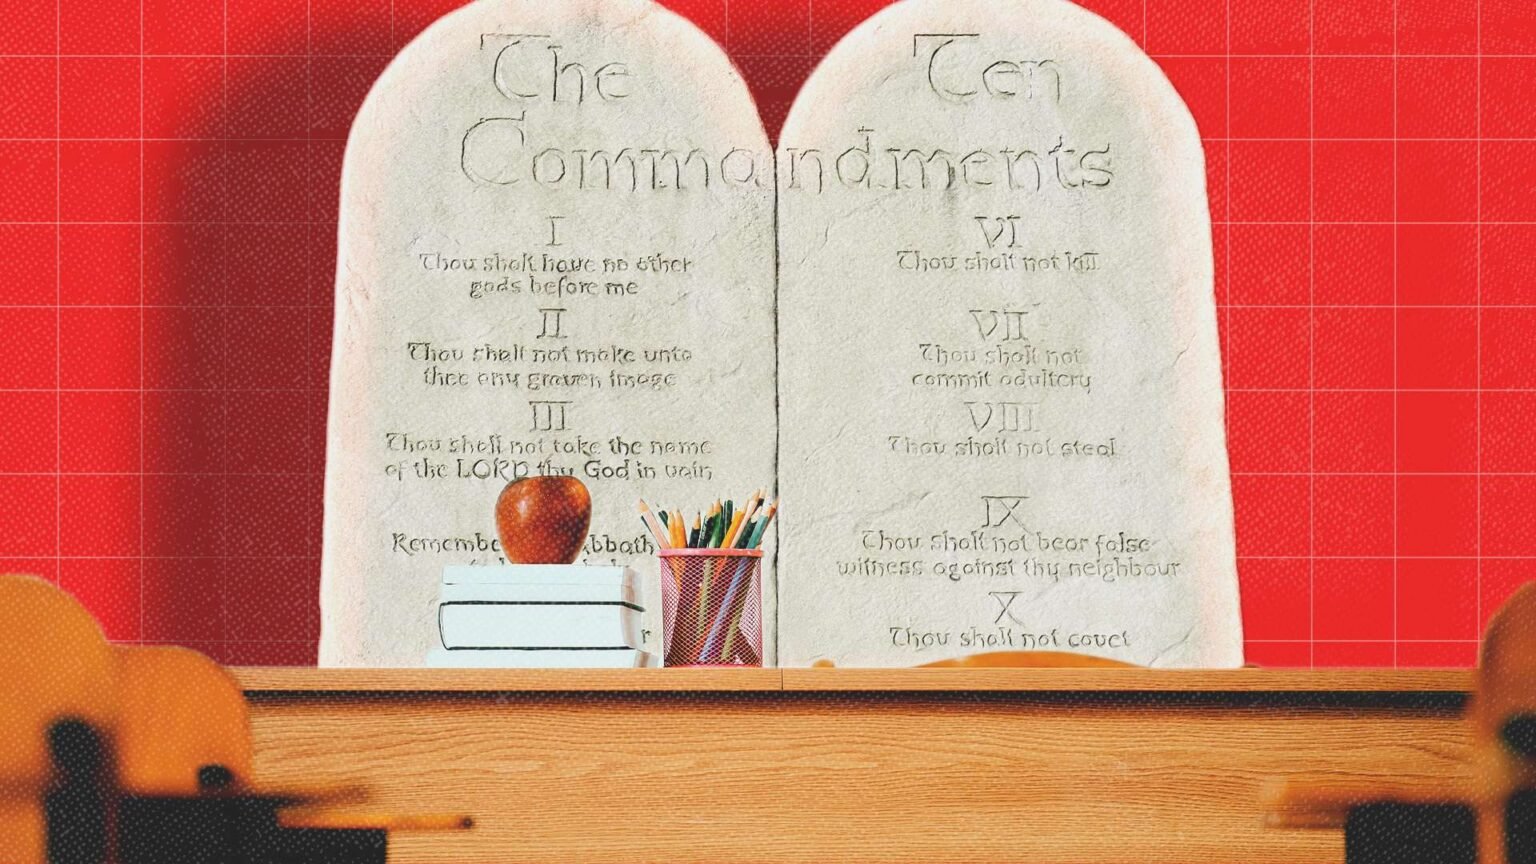 The Ten
Commandments
I
Thou shalt have no other
gods before me
II
Thou shalt not make unto
thee any graven image
III
Thou shalt not take the name
of the LORD thy God in vain
Remembe bbath
r
VI
Thou shalt not kill
VII
Thou shalt not
commit adultery
VIII
Thou shalt not steal
IX
Thou shalt not bear false
witness against thy neighbour
X
Thou shalt not covet